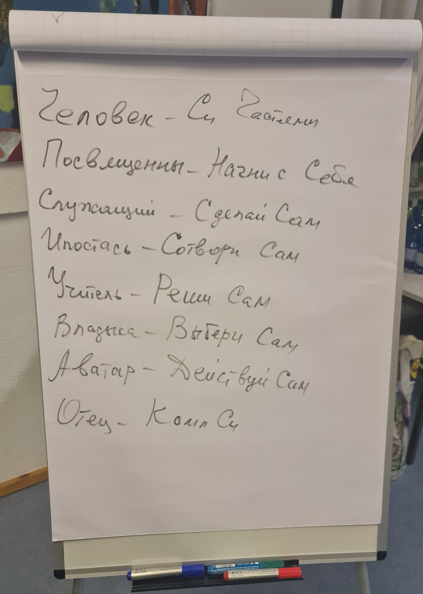 Человек - Си Частями
Посвященны - Начни с Себя
Служащий - Сделай Сам
Ипостась - Сотвори Сам
Учитель - Реши Сам
Владыка - Выбери Сам
Аватар - Действуй Сам
Отец - Комп Си